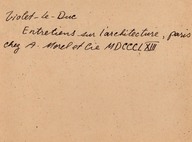 Violet-le-Duc
Entretiens sur l'architecture, paris
chez A. Morel et Cie MDCCCLXIII